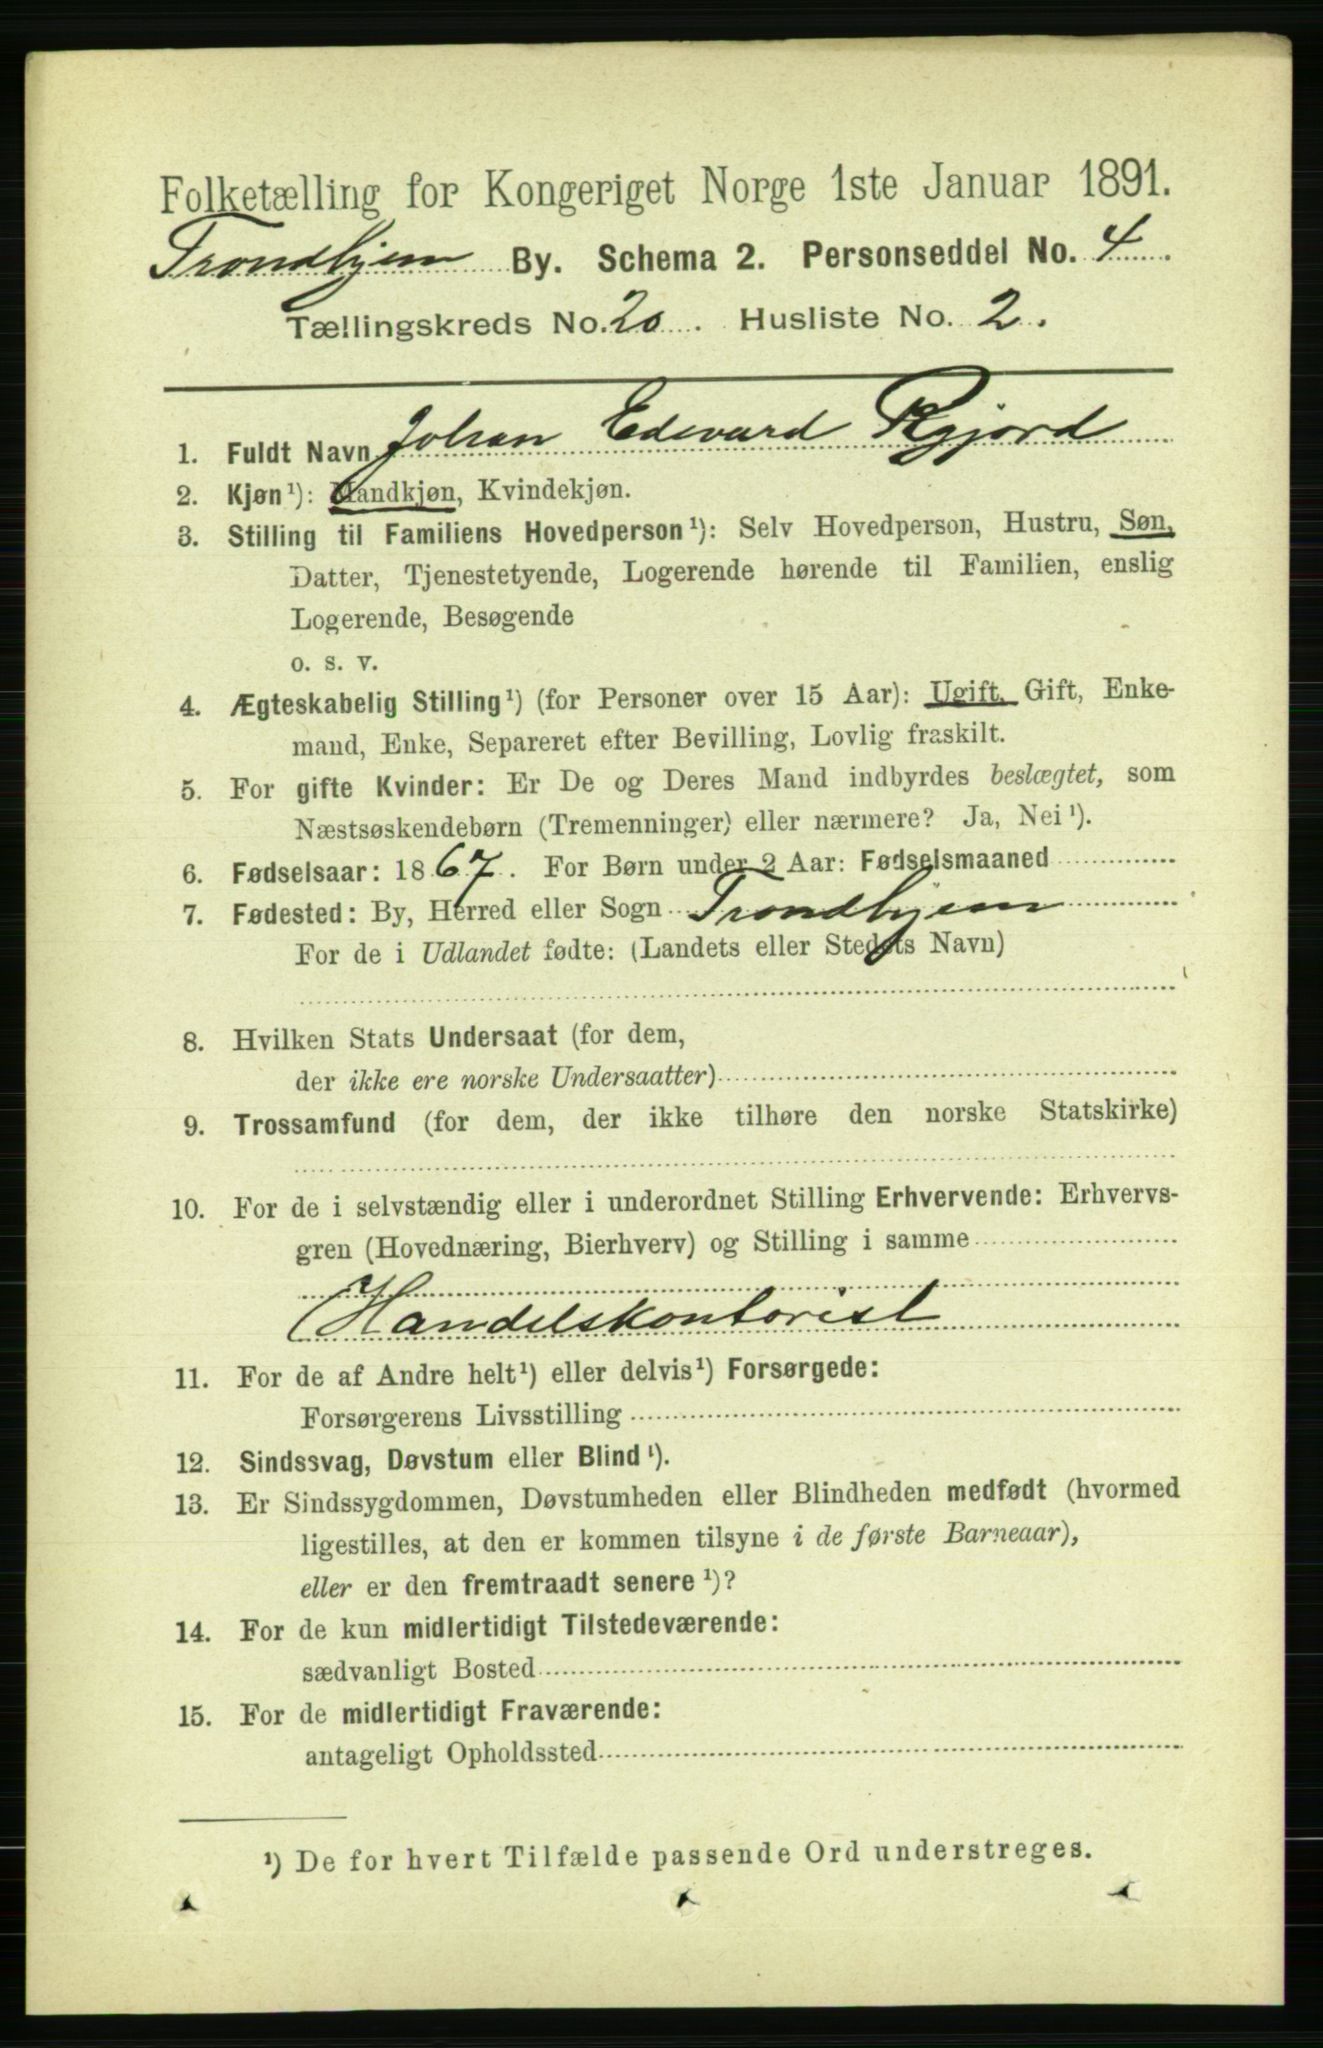 Folketælling for Kongeriget Norge 1ste Januar 1891.
Trondhjem By. Schema 2. Personseddel No. 4.
Tællingskreds No. 20. Husliste No. 2.
1. Fuldt Navn Johan Edevard
2. Kjøn¹): Mandkjøn, Kvindekjøn.
3. Stilling til Familiens Hovedperson¹): Selv Hovedperson, Hustru, Søn,
Datter, Tjenestetyende, Logerende hørende til Familien, enslig
Logerende, Besøgende
o. s. v.
4. Ægteskabelig Stilling¹) (for Personer over 15 Aar): Ugift, Gift, Enke-
mand, Enke, Separeret efter Bevilling, Lovlig fraskilt.
5. For gifte Kvinder: Er De og Deres Mand indbyrdes beslægtet, som
Næstsøskendebørn (Tremenninger) eller nærmere? Ja, Nei¹).
6. Fødselsaar: 1867. For Børn under 2 Aar: Fødselsmaaned
7. Fødested: By, Herred eller Sogn Trondhjem
For de i Udlandet fødte: (Landets eller Stedets Navn)
8. Hvilken Stats Undersaat (for dem,
der ikke ere norske Undersaatter)
9. Trossamfund (for dem, der ikke tilhøre den norske Statskirke)
10. For de i selvstændig eller i underordnet Stilling Erhvervende: Erhvervs-
gren (Hovednæring, Bierhverv) og Stilling i samme
Handelskontorist
11. For de af Andre helt¹) eller delvis¹) Forsørgede:
Forsørgerens Livsstilling
12. Sindssvag, Døvstum eller Blind¹).
13. Er Sindssygdommen, Døvstumheden eller Blindheden medfødt (hvormed
ligestilles, at den er kommen tilsyne i de første Barneaar),
eller er den fremtraadt senere¹)?
14. For de kun midlertidigt Tilstedeværende:
sædvanligt Bosted
15. For de midlertidigt Fraværende:
antageligt Opholdssted
¹) De for hvert Tilfælde passende Ord understreges.